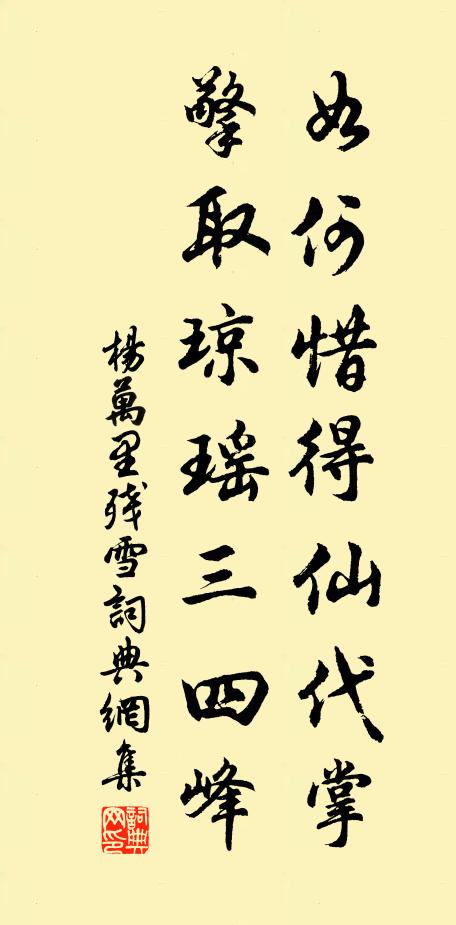 如何惜得仙代掌
擎取琼瑶三四峰
楊萬里残雪詞典網集
詞典网印